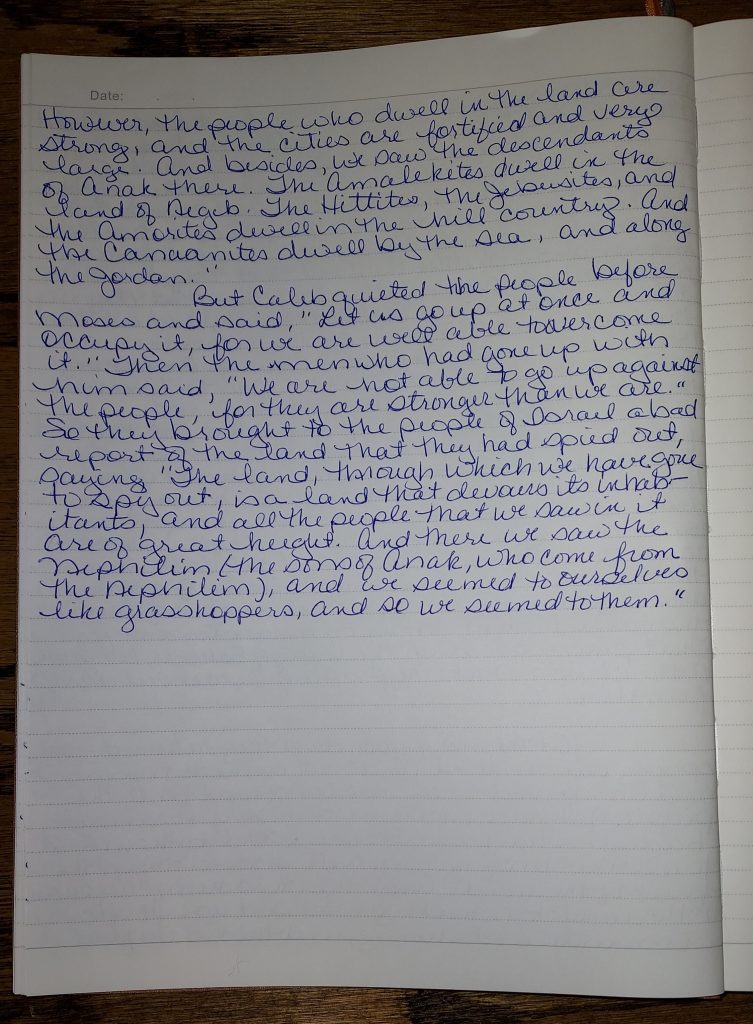 Date:
However, the people who dwell in the land are
strong, and the cities are fortified and very
large. And besides, we saw the descendants
of Anak there. The Amalekites dwell in the
land of Negeb. The Hittites, the Jebusites, and
the Amorites dwell in the hill country. And
the Canaanites dwell by the sea, and along
the Jordan."
But Caleb quieted the people before
Moses and said, "Let us go up at once and
occupy it, for we are well able to overcome
it." Then the men who had gone up with
him said, "We are not able to go up against
the people, for they are stronger than we are."
So they brought to the people of Israel a bad
report of the land that they had spied out,
saying, "The land, through which we have gone
to spy out, is a land that devours its inhab-
itants, and all the people that we saw in it
are of great height. And there we saw the
Nephilim (the sons of Anak, who come from
the Nephilim), and we seemed to ourselves
like grasshoppers, and so we seemed to them."